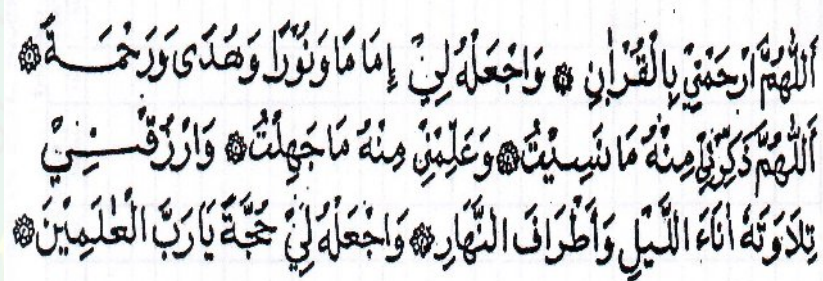 اَللّٰهُمَّ ارْحَمْنِيْ بِالْقُرْاٰنِ ۞ وَاجْعَلْهُ لِيْ اِمَامًا وَنُوْرًا وَهُدًى وَرَحْمَـــةً ۞
اَللّٰهُمَّ ذَكِّرْنِيْ مِنْهُ مَا نَسِيْتُ ۞ وَعَلِّمْنِيْ مِنْهُ مَا جَهِلْتُ ۞ وَارْزُقْـــنِيْ
تِلَاوَتَهٗ اٰنَاءَ اللَّيْلِ وَاَطْرَافَ النَّهَارِ ۞ وَاجْعَلْهُ لِيْ حُجَّةً يَارَبَّ الْعٰلَمِيْنَ ۞